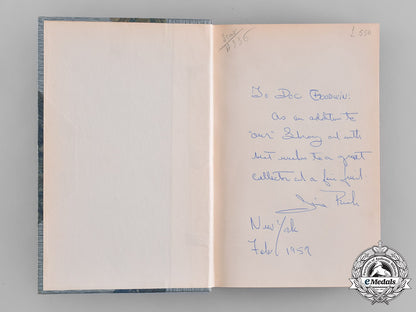 £550
To Doc Goodwin:
As an addition to
"our" Library and with
best wishes to a great
collector and a fine friend
New York
Feb. 1959
eMedals